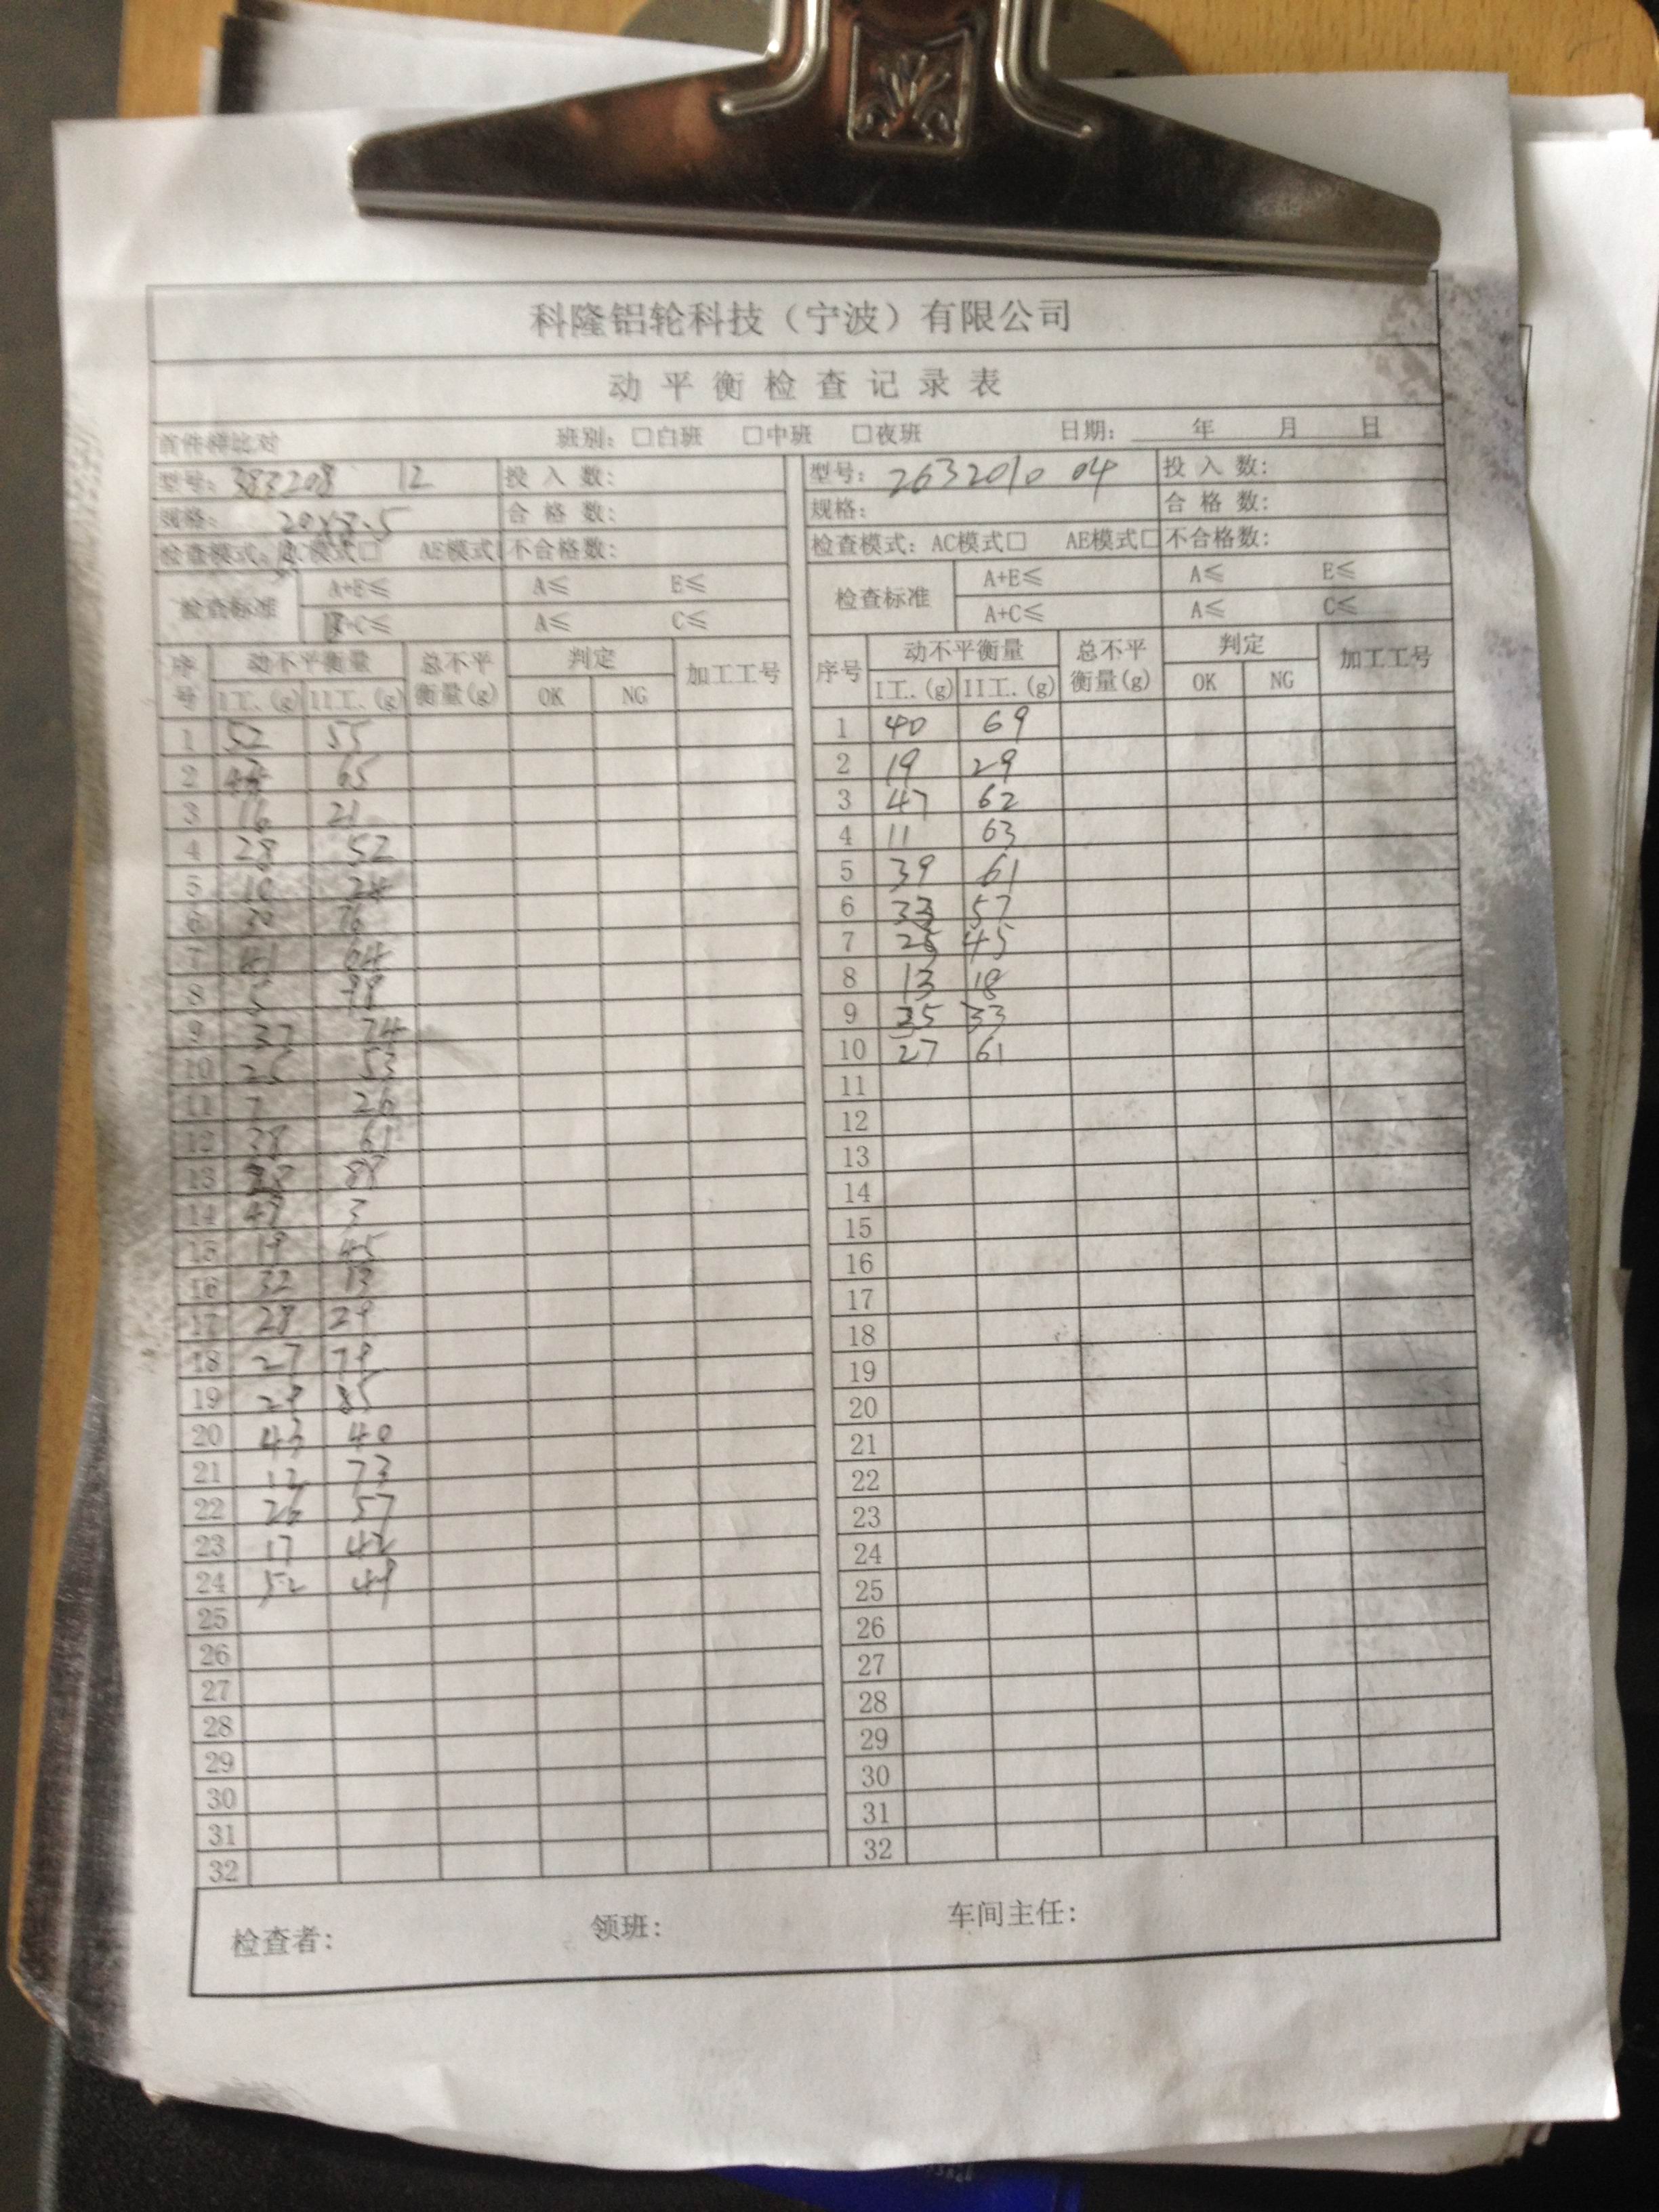 科隆铝轮科技（宁波）有限公司
动平衡检查记录表
首件样比对 班别：□白班 □中班 □夜班 日期：____年____月____日
型号：383208 12 投入数： 型号：2632010 04 投入数：
规格：20x8.5 合格数： 规格： 合格数：
检查模式：AC模式□ AE模式 不合格数： 检查模式：AC模式□ AE模式□ 不合格数：
检查标准 A+E≤ A≤ E≤ 检查标准 A+E≤ A≤ E≤
+C≤ A≤ C≤ A+C≤ A≤ C≤
序号 动不平衡量 总不平衡量(g) 判定 加工工号 序号 动不平衡量 总不平衡量(g) 判定 加工工号
I工..(g) II工..(g) OK NG I工..(g) II工..(g) OK NG
1 52 55 1 40 69
2 44 65 2 19 29
3 16 21 3 47 62
4 28 52 4 11 63
5 10 24 5 39 61
6 30 76 6 33 57
7 41 64 7 25 45
8 5 8 13 18
9 37 74 9 35 33
10 25 53 10 27 61
11 7 26 11
12 38 61 12
13 13
14 49 3 14
15 19 45 15
16 32 13 16
17 28 29 17
18 27 79 18
19 29 85 19
20 43 40 20
21 12 73 21
22 26 57 22
23 17 42 23
24 52 49 24
25 25
26 26
27 27
28 28
29 29
30 30
31 31
32 32
检查者： 领班： 车间主任：